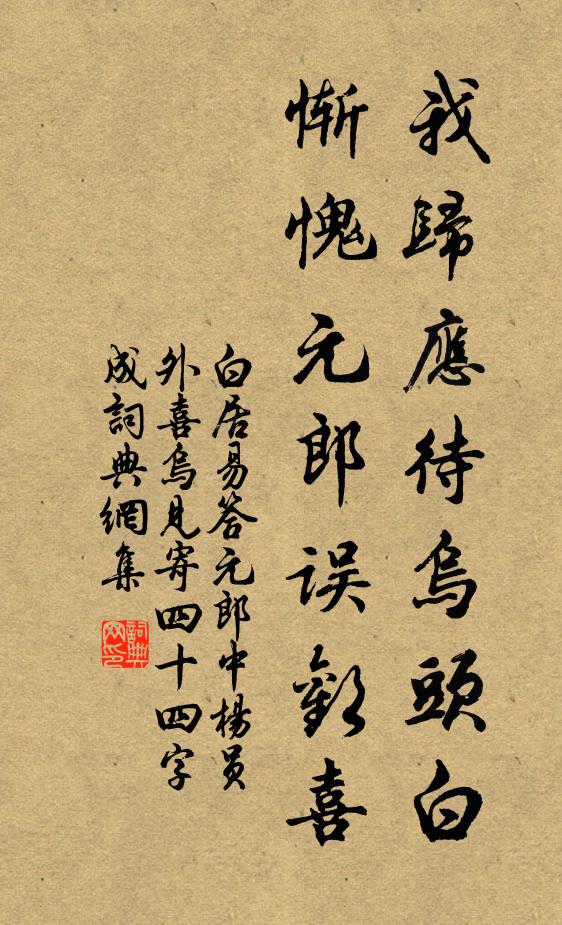 我歸應待烏頭白
慚愧元郎誤歡喜
白居易答元郎中楊員
外喜烏見寄四十四字
成詞典網集
詞典
網印